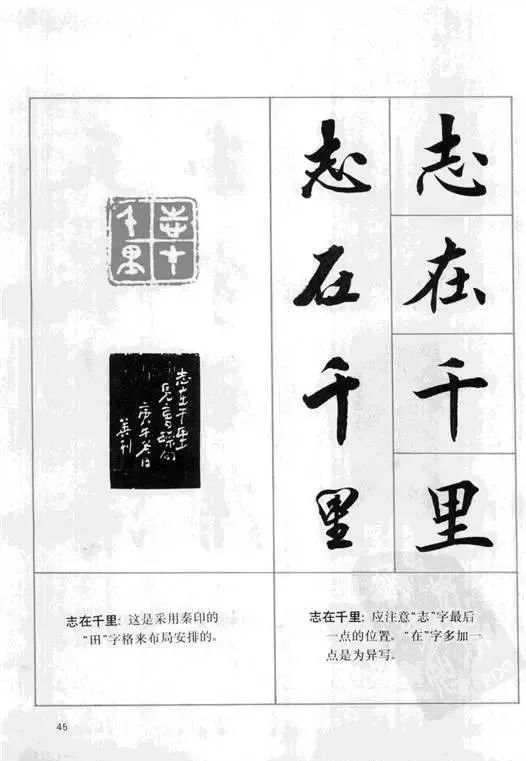 志在千里
志在千里
志在千里
志在千里
庚午
志在千里：这是采用秦印的
“田”字格来布局安排的。
志在千里：应注意“志”字最后
一点的位置。“在”字多加一
点是为异写。
45